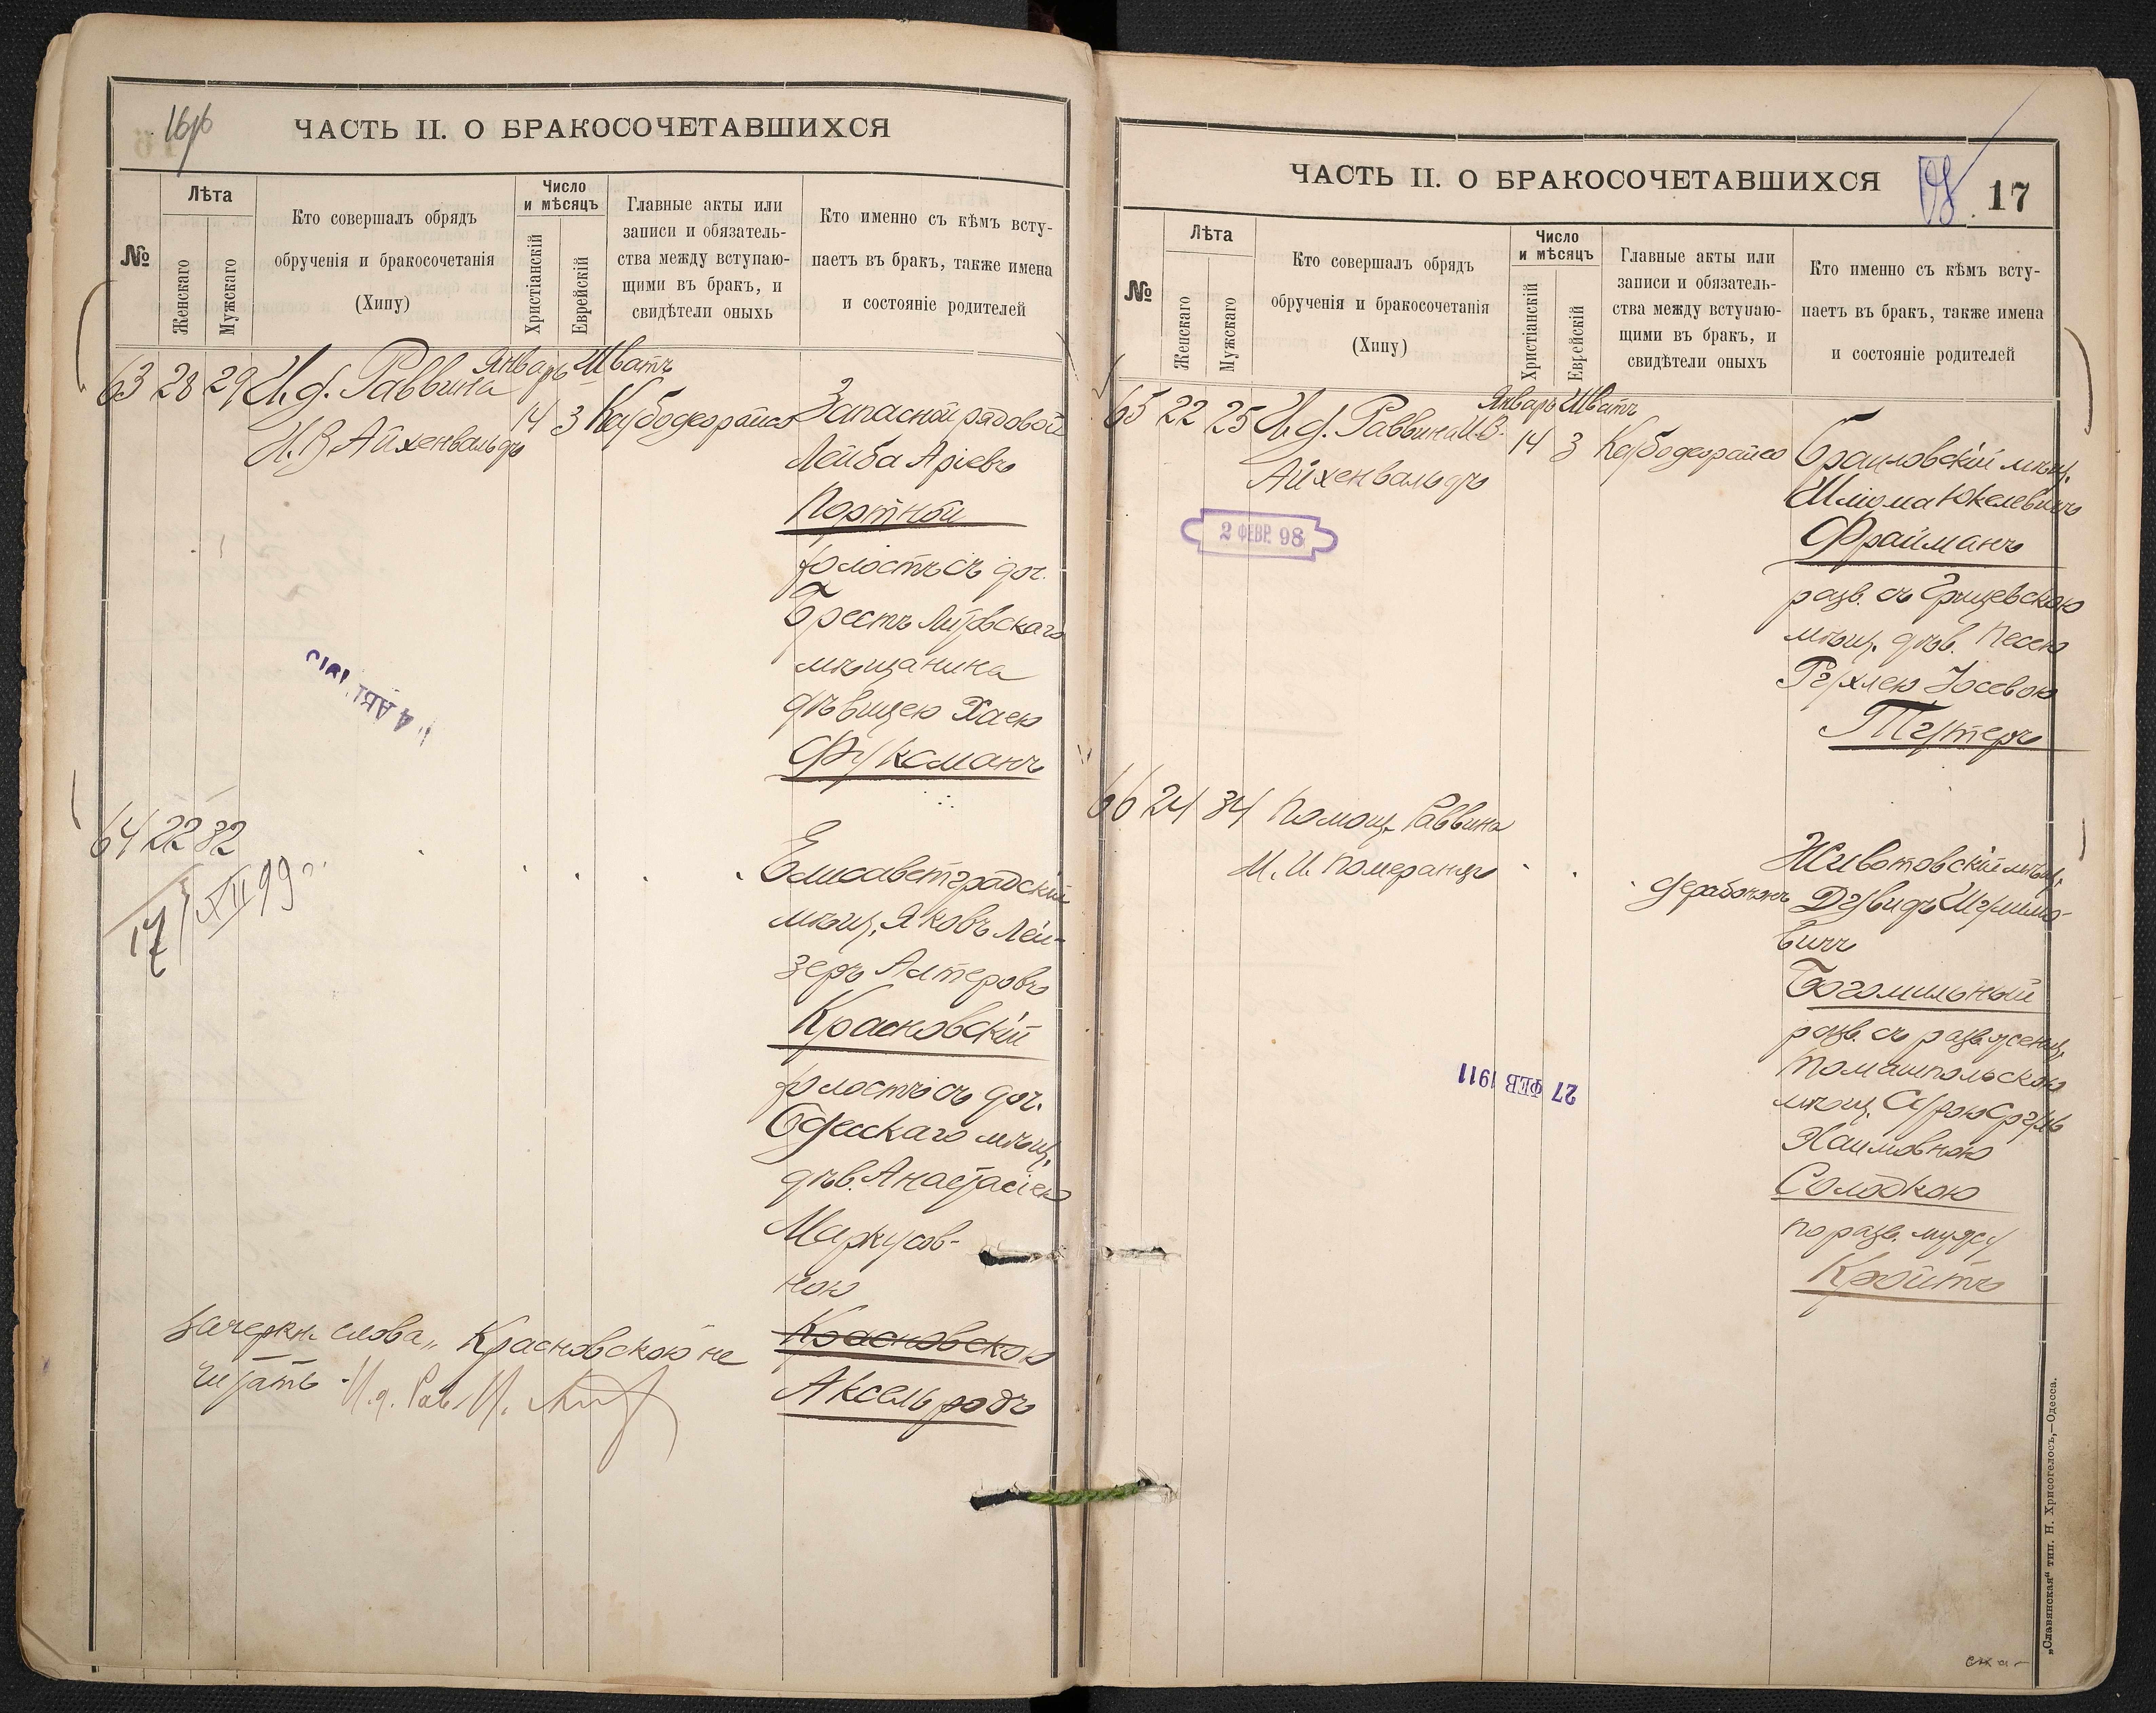 ЧАСТЬ II. О БРАКОСОЧЕТАВШИХСЯ
№
Лѣта
Женскаго
Мужскаго
Кто совершалъ обрядъ
обрученія и бракосочетанія
(Хипу)
Число
и мѣсяцъ
Христіанскій
Еврейскій
Главные акты или
записи и обязатель-
ства между вступаю-
щими въ бракъ, и
свидѣтели оныхъ
Кто именно съ кѣмъ всту-
паетъ въ бракъ, также имена
и состояніе родителей
Январь Шватъ
63 28 29 И.д. Раввина
И.В. Айхенвальдъ
14 3
Запасной рядовой
Лейба Аріевъ
Портной
холостъ съ доч.
Брестъ Литовскаго
мѣщанина
дѣвицею Хаею
Фуксманъ
64 22 32
17/XII 99 г.
Елисаветградскій
мѣщ. Яковъ Лей-
зеръ Алтеровъ
Красновскій
холостъ съ доч.
Одесскаго мѣщ.
дѣв. Анастасіею
Маркусов-
ною
Красновскою
Аксельродъ
Зачеркн. слова „Красновскою не
читать. И.д. Рав.
ЧАСТЬ II. О БРАКОСОЧЕТАВШИХСЯ
17
№
Лѣта
Женскаго
Мужскаго
Кто совершалъ обрядъ
обрученія и бракосочетанія
(Хипу)
Число
и мѣсяцъ
Христіанскій
Еврейскій
Главные акты или
записи и обязатель-
ства между вступаю-
щими въ бракъ, и
свидѣтели оныхъ
Кто именно съ кѣмъ всту-
паетъ въ бракъ, также имена
и состояніе родителей
Январь Шватъ
65 22 25 И.д. Раввина И.В.
Айхенвальдъ
14 3
2 ФЕВР. 98
Браиловскій мѣщ.
Шліома Юкелевичъ
Фрайманъ
разв. съ Грицевскою
мѣщ. дѣв. Песею
Рухлею Іосевою
Тутеръ
66 24 34 Помощ. Раввина
М. И. Померанцъ
Животовскій мѣщ.
Дувидъ Шулимо-
вичъ
Богомильный
разв. съ разв. женщ.
Томашпольскою
мѣщ. Сурою Фрумъ
Хаимовною
Солодкою
по разв. мужу
Кройтъ
27 ФЕВ 1911
„Славянская“ тип. Н. Хрисогелосъ,—Одесса.